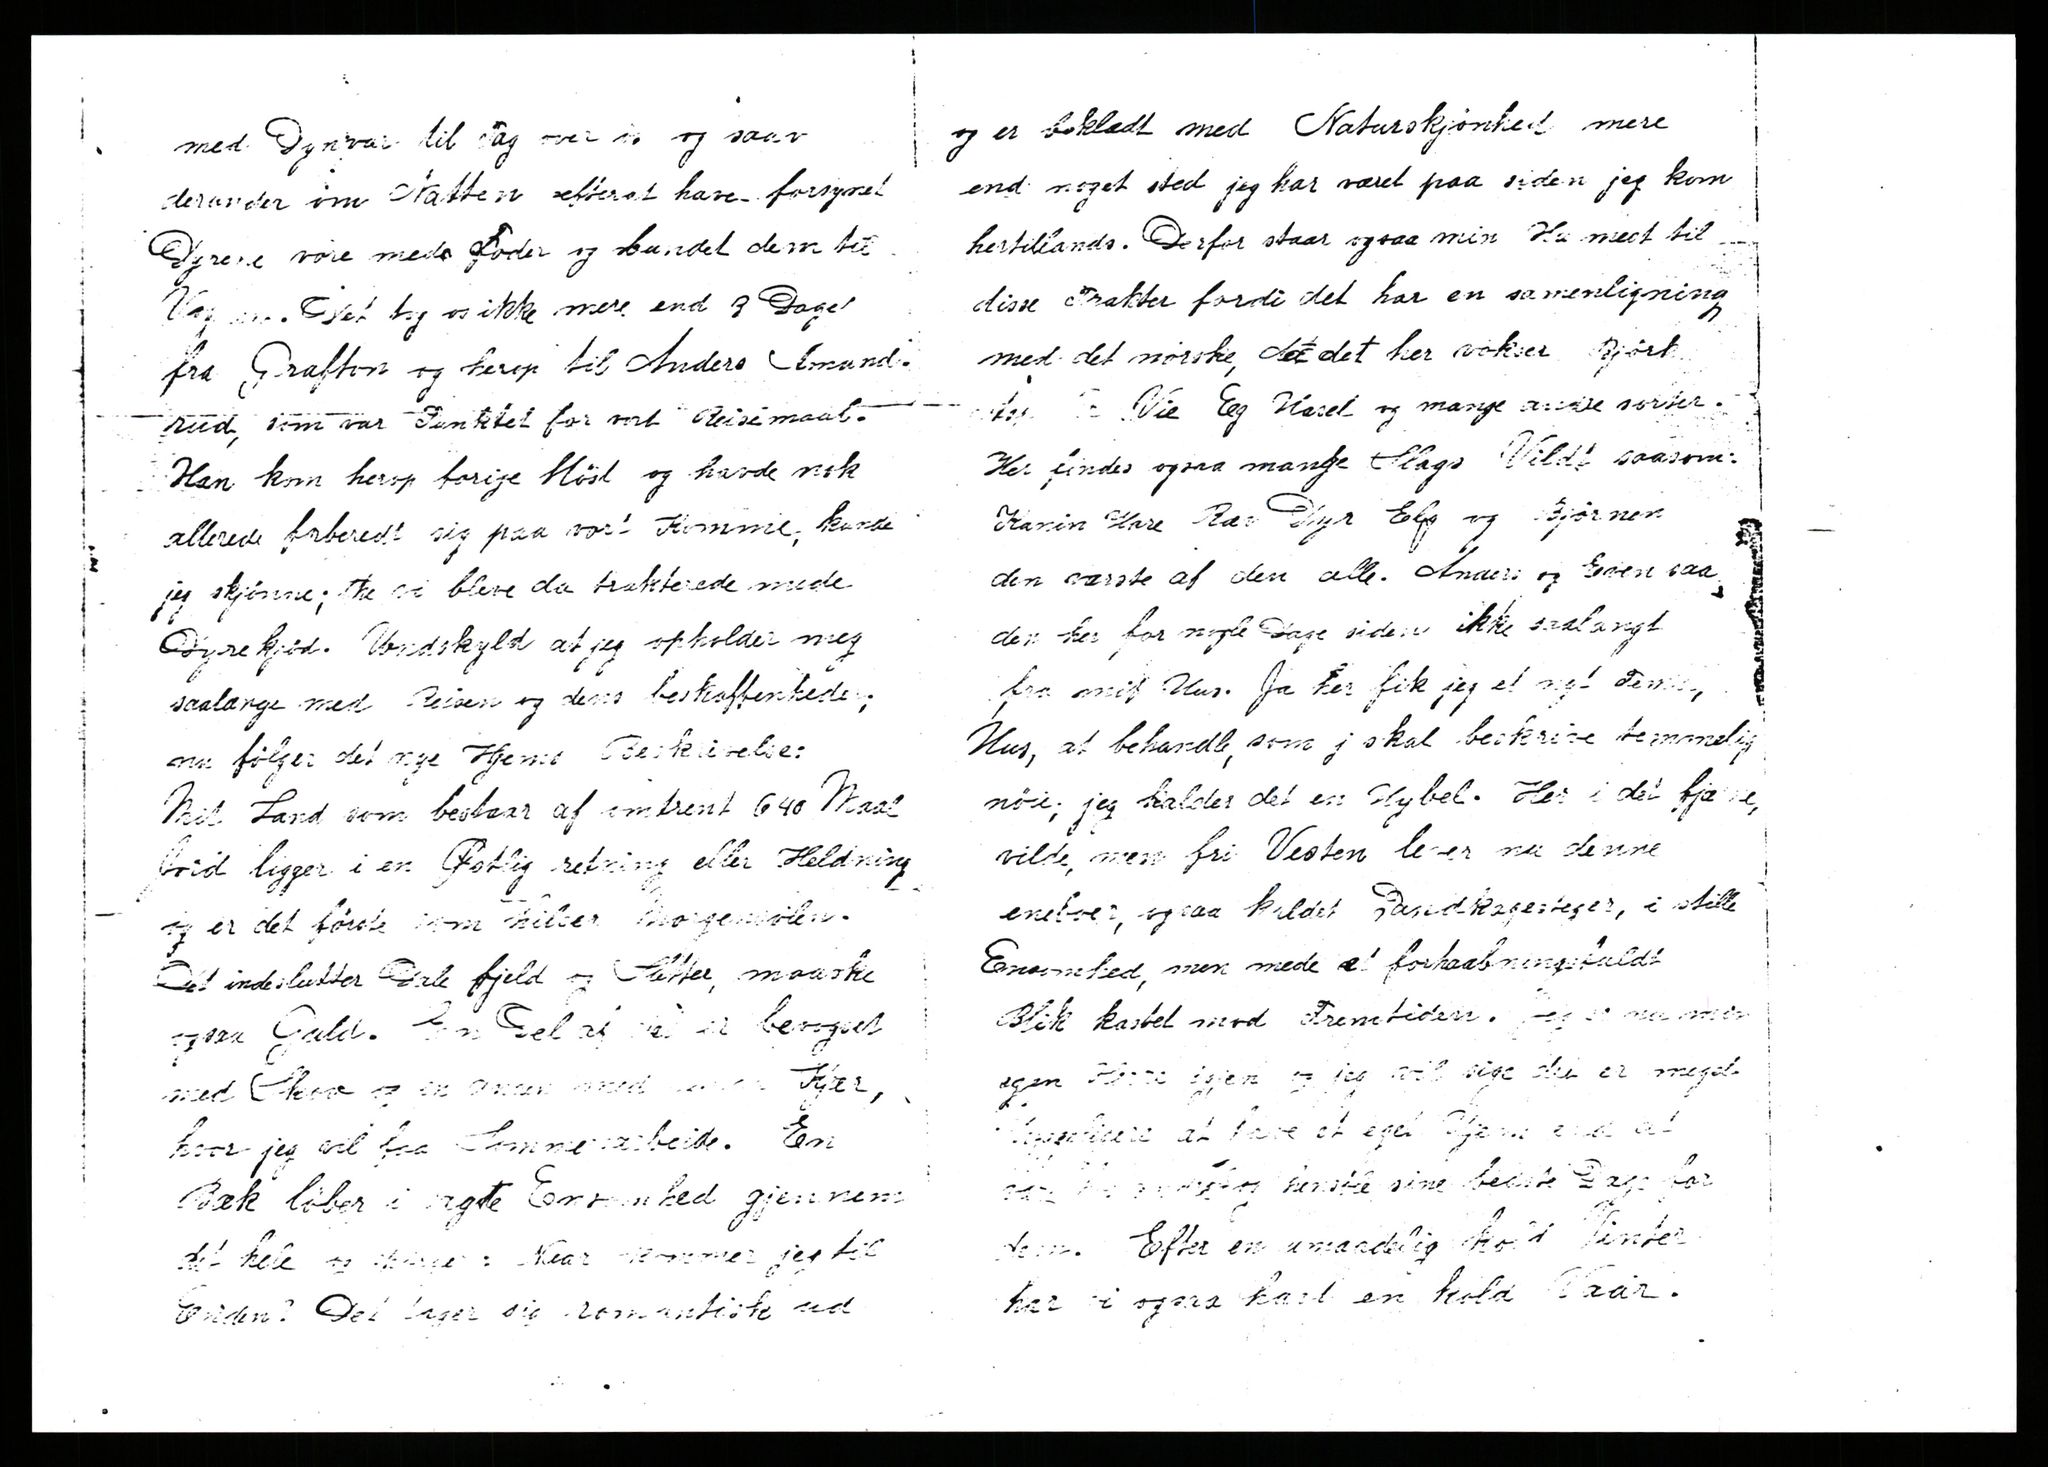 med Dynvar til Tag over os og saav
derunder om Natten efterat have forsynet
Dyrene vore mede Foder og bundet dem til
Vognen. Det tog os ikke mere end 3 Dage
fra Grafton og herop til Anders Amund-
rud, som var Punktet for vort Reisemaal.
Han kom herop forige Høst og havde nok
allerede forberedt sig paa vort Komme, kunde
jeg skjønne; the vi bleve da trakterede mede
Dyrekjød. Undskyld at jeg opholder meg
saalænge med Reisen og dens beskaffenheder;
nu følger det nye Hjems Beskrivelse:
Mit Land som bestaar af omtrent 640 Maal
Jord ligger i en Østlig retning eller Heldning
og er det første som hilser Morgensolen.
Det indeslutter Dale fjeld og Sletter, maaske
ogsaa Guld. En Del af det er bevogset
med Skov og en anden med Kjær,
hvor jeg vil faa Sommerarbeide. En
Bæk løber i sagte Ensomhed gjennem
det hele og : Naar kommer jeg til
Enden? Det tager sig romantisk ud
og er beklædt med Naturskjønhed mere
end noget sted jeg har været paa siden jeg kom
hertillands. Derfor staar ogsaa min Hu mest til
disse Trakter fordi det har en samenligning
med det norske, det her vokser Bjørk
Vie Eg Hasel og mange andre sorter.
Her findes ogsaa mange Slags Vildt saasom:
Kanin Hare Ræv Dyr Elg og Bjørnen
den værste af den alle. Anders og Even saa
den her for nogle Dage siden ikke saalangt
fra mit Hus. Ja her fik jeg et nyt Tema,
Hus, at behandle, som j skal beskrive temmelig
nøie; jeg kalder det en Hybel. Her i det fjærne,
vilde, men fri Vesten lever nu denne
eneboer, ogsaa kaldet Pandkagesteger, i stille
Ensomhed, men mede et forhaabningsfuldt
Blik kastet mod Fremtiden. Jeg er nu min
egen Herre igjen og jeg vil sige det er meget
hyggeligere at have et eget Hjem end at
og henslide sine bedste Dage for
dem. Efter en umaadelig kold Vinter
har vi ogsaa havt en kold Vaar.